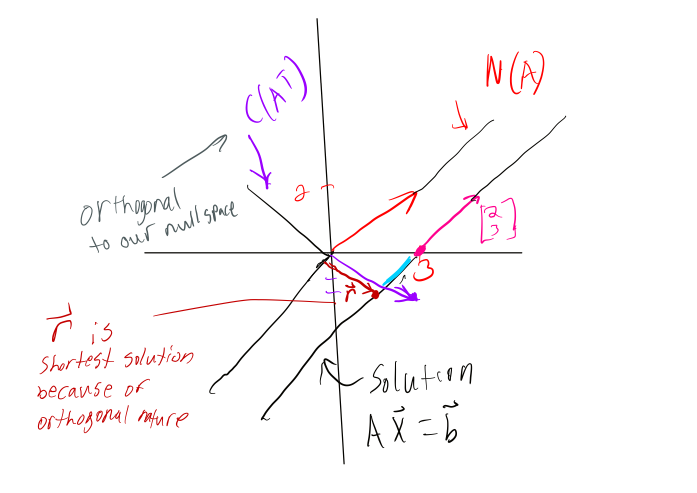 N(A)
C(AT)
2
orthogonal
to our nullspace
[2
3]
3
r
r is
shortest solution
because of
orthogonal nature
solution
Ax = b